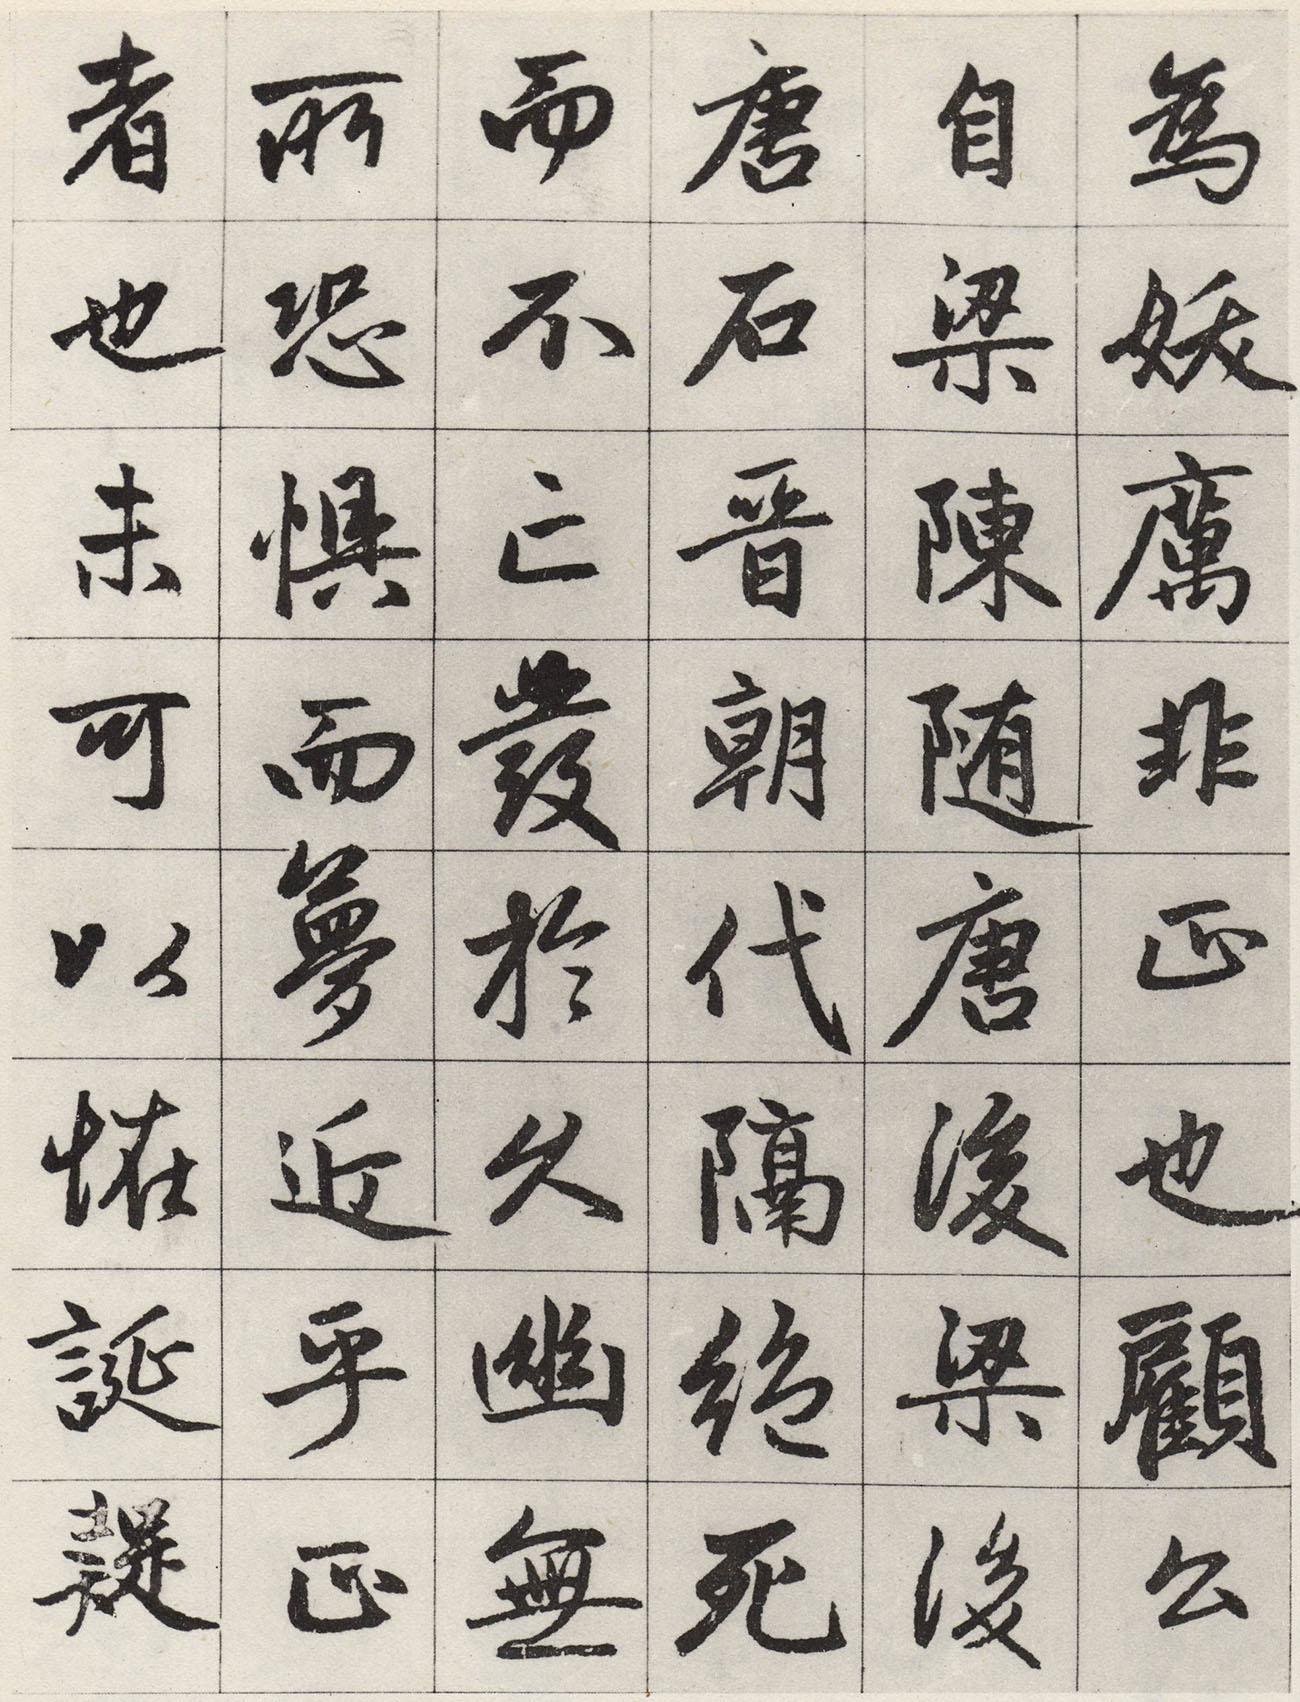 為妖厲非正也顧公
自梁陳随唐後梁後
唐石晉朝代隔絶死
而不亡發於久幽無
所恐懼而夢近乎正
者也未可以恠誕疑